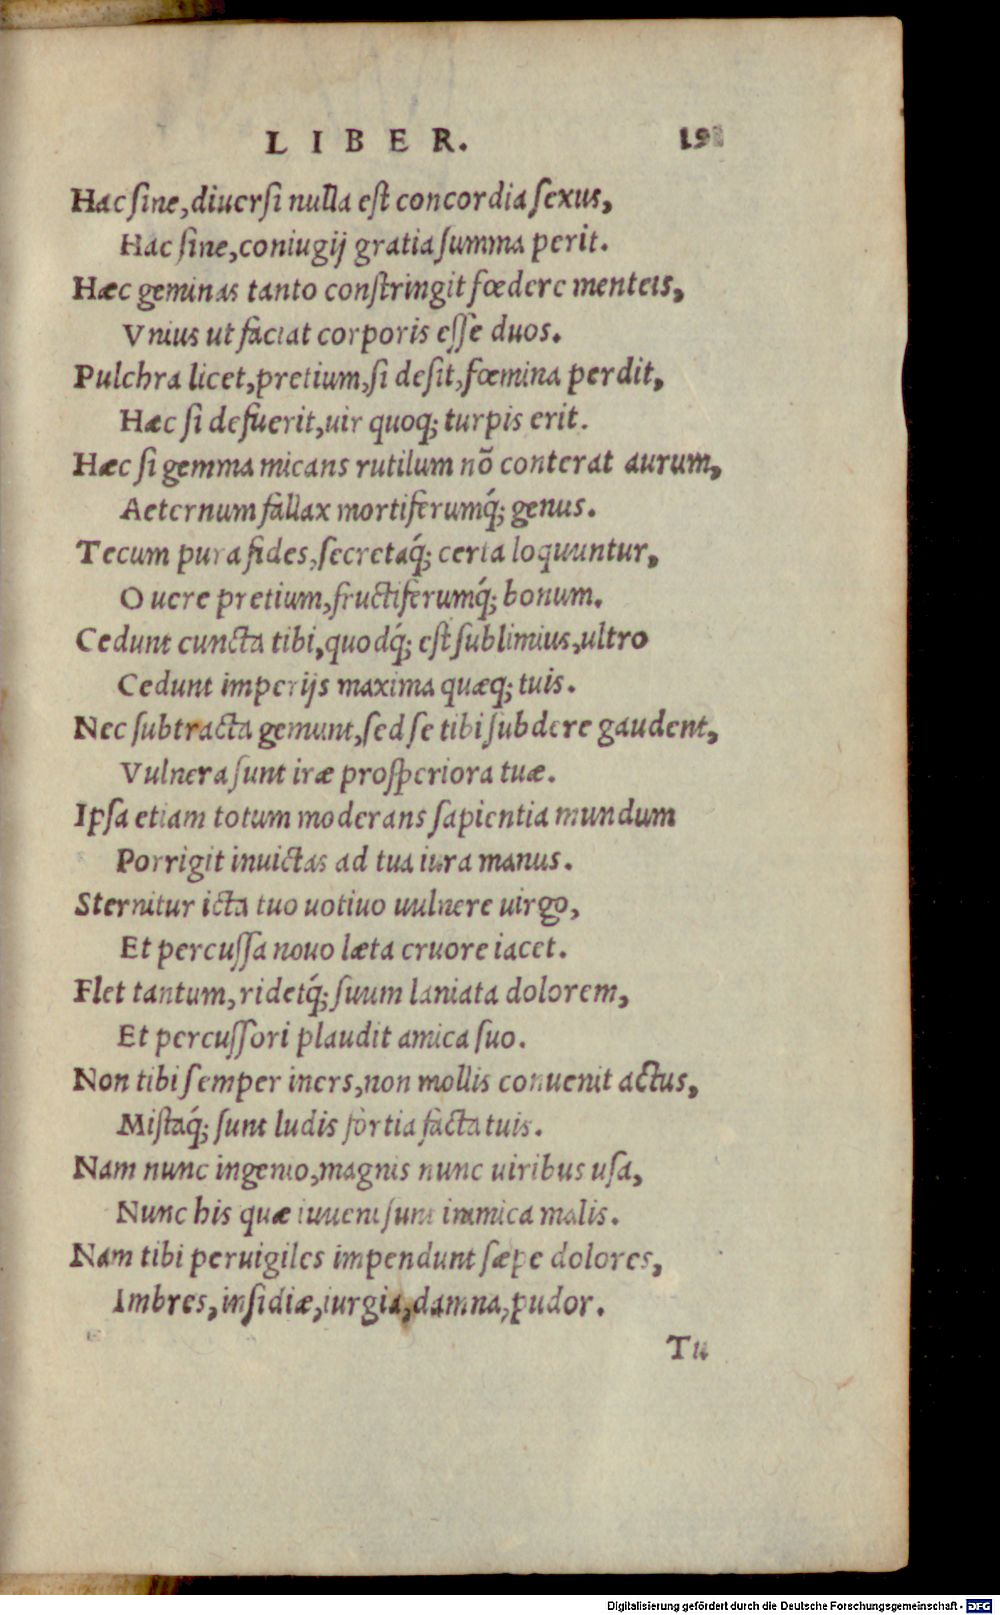 LIBER. 191
Hac sine, diuersi nulla est concordia sexus,
Hac sine, coniugij gratia summa perit.
Hæc geminas tanto constringit fœdere menteis,
Vnius ut faciat corporis esse duos.
Pulchra licet, pretium, si desit, fœmina perdit,
Hæc si defuerit, uir quoq; turpis erit.
Hæc si gemma micans rutilum nõ conterat aurum,
Aeternum fallax mortiferumq́; genus.
Tecum pura fides, secretaq́; certa loquuntur,
O uere pretium, fructiferumq́; bonum.
Cedunt cuncta tibi, quodq́; est sublimius, ultro
Cedunt imperijs maxima quæq; tuis.
Nec subtracta gemunt, sed se tibi subdere gaudent,
Vulnera sunt iræ prosperiora tuæ.
Ipsa etiam totum moderans sapientia mundum
Porrigit inuictas ad tua iura manus.
Sternitur icta tuo uotiuo uulnere uirgo,
Et percussa nouo læta cruore iacet.
Flet tantum, ridetq́; suum laniata dolorem,
Et percussori plaudit amica suo.
Non tibi semper iners, non mollis conuenit actus,
Mistaq́; sunt ludis fortia facta tuis.
Nam nunc ingenio, magnis nunc uiribus usa,
Nunc his quæ iuueni sunt inimica malis.
Nam tibi peruigiles impendunt sæpe dolores,
Imbres, insidiæ, iurgia, damna, pudor.
Tu
Digitalisierung gefördert durch die Deutsche Forschungsgemeinschaft - DFG